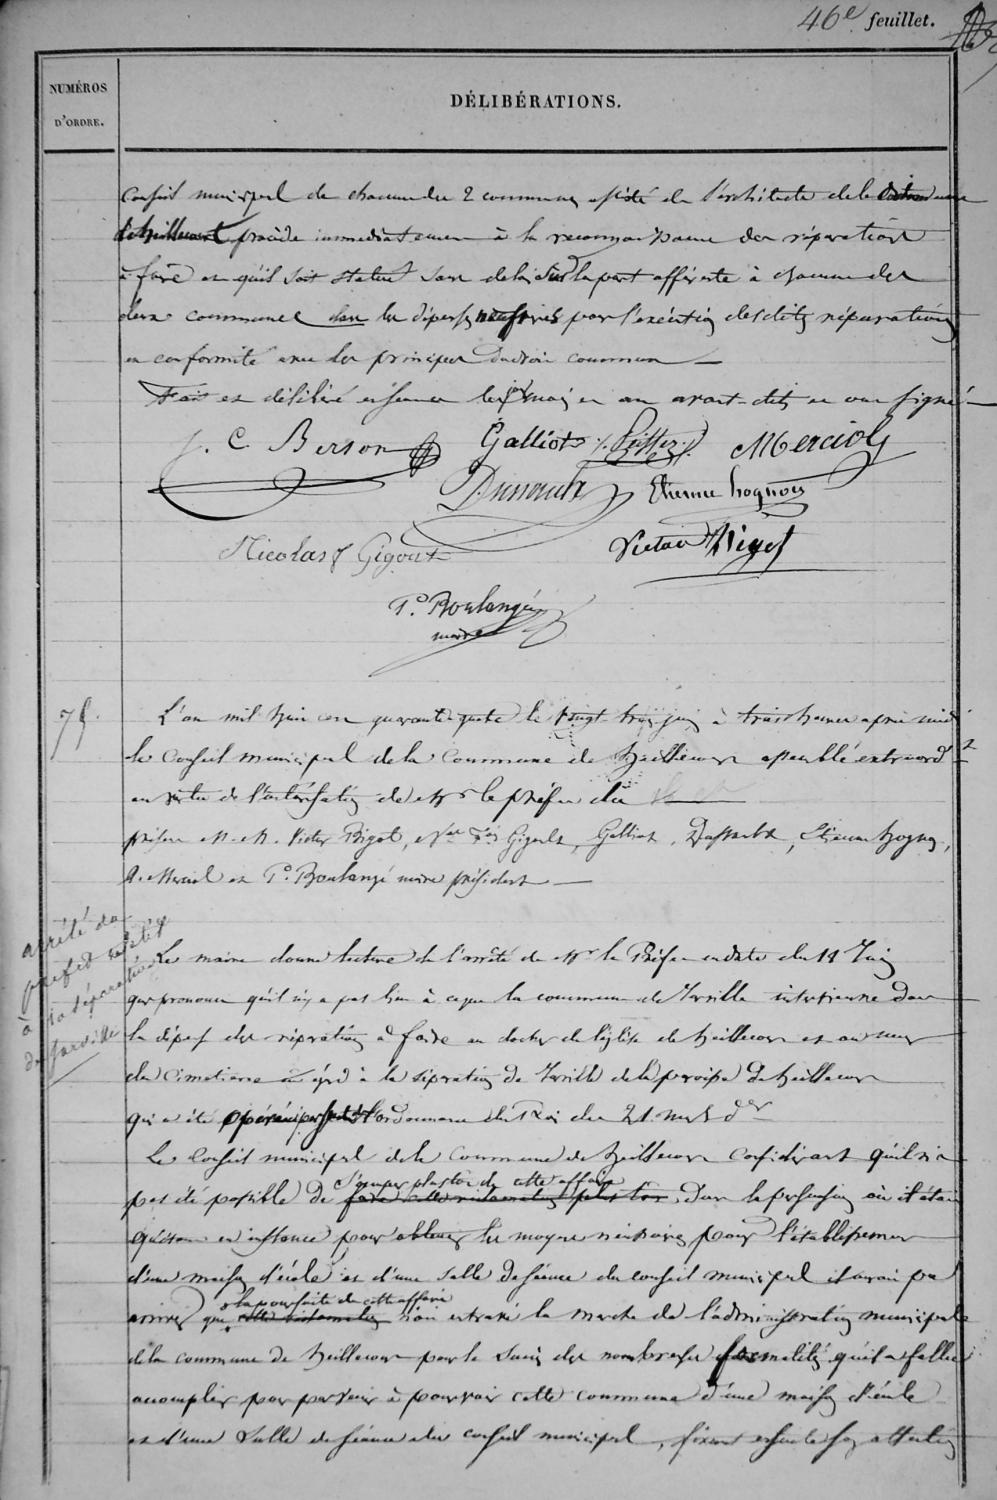 46e feuillet.
NUMÉROS
D'ORDRE.
DÉLIBÉRATIONS.
Conseil municipal de chacune des 2 communes assisté de l'architecte de la
d'heillecourt procède immédiatement à la reconnaissance des réparations
à faire et qu'il soit statué sans délai sur la part afférente à chacune des
deux communes dans les dépenses nécessaires pour l'exécution desdites réparations
en conformité avec les principes du droit commun
Fait et délibéré en séance les jour mois et an avant-dits et ont signé
J. C. Berson Galliot Merciol
Dussault Etienne hognon
Nicolas F Gigout Victor Bigot
P. Boulangé
maire
75.
L'an mil huit cent quarante quatre le vingt trois juin à trois heures après midi
le Conseil municipal de la Commune de heillecourt assemblé extraord
en vertu de l'autorisation de Mr le préfet du
présens M.M. Victor Bigot, Nas Fois Gigout, Galliot, Dussault, Etienne hognon,
Merciol et P. Boulangé maire président
arrêté du
préfet relatif
à la séparation
de Jarville
Le maire donne lecture de l'arrêté de Mr le Préfet en date du 11 Juin
qui prononce qu'il n'y a pas lieu à ce que la commune de Jarville intervienne dans
la dépense des réparations à faire au clocher de l'église de heillecourt et au mur
du Cimetière eu égard à la séparation de Jarville de la paroisse de heillecourt
qui a été opérée par l'ordonnance du Roi du 21 mars der
Le Conseil municipal de la Commune de heillecourt Considérant qu'il n'a
s'occuper plustôt de cette affaire
pas été possible de faire cette réclamation plus tôt, dans la persuasion où il était
qu'étant en instance pour obtenir les moyens nécessaires pour l'établissement
d'une maison d'école et d'une salle de séance du conseil municipal il aurait pu
la poursuite de cette affaire
arriver que cette réclamation n'ait entravé la marche de l'administration municipale
de la commune de heillecourt pour le suivi des nombreuses formalités qu'il a fallu
accomplir pour parvenir à pourvoir cette commune d'une maison d'école
et d'une salle de séance du conseil municipal, fixant ensuite son attention